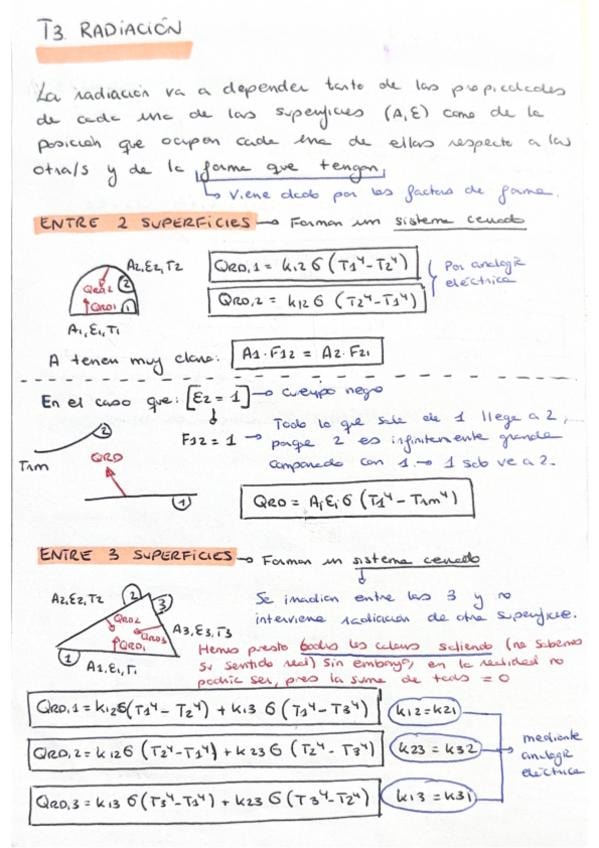 T3. RADIACIÓN
La radiación va a depender tanto de las propiedades
de cada una de las superficies (A,ε) como de la
posición que ocupan cada una de ellas respecto a las
otra/s y de la forma que tengan,
↳ Viene dado por los factores de forma.
ENTRE 2 SUPERFICIES → Forman un sistema cerrado
A2,ε2,T2
QRD2
(2)
QRD1
(1)
A1,ε1,T1
QRD,1 = K12 σ (T1⁴-T2⁴)
QRD,2 = K12 σ (T2⁴-T1⁴)
Por analogía
eléctrica
A tener muy claro: A1·F12 = A2·F21
En el caso que: [ε2 = 1] → Cuerpo negro
F12 = 1 → Todo lo que sale de 1 llega a 2,
porque 2 es infinitamente grande
comparado con 1. → 1 solo ve a 2.
(2)
Tam
QRD
(1)
QRD = A1 ε1 σ (T1⁴ - Tam⁴)
ENTRE 3 SUPERFICIES → Forman un sistema cerrado
Se irradian entre las 3 y no
interviene radiación de otra superficie.
A2,ε2,T2
(2)
(3)
QRD2
QRD3
QRD1
A3,ε3,T3
(1)
A1,ε1,T1
Hemos puesto todos los calores saliendo (no sabemos
su sentido real) Sin embargo, en la realidad no
podría ser, pues la suma de todos = 0
QRD,1 = K12 σ (T1⁴ - T2⁴) + K13 σ (T1⁴ - T3⁴) K12 = K21
QRD,2 = K12 σ (T2⁴ - T1⁴) + K23 σ (T2⁴ - T3⁴) K23 = K32
QRD,3 = K13 σ (T3⁴ - T1⁴) + K23 σ (T3⁴ - T2⁴) K13 = K31
→ mediante
analogía
eléctrica